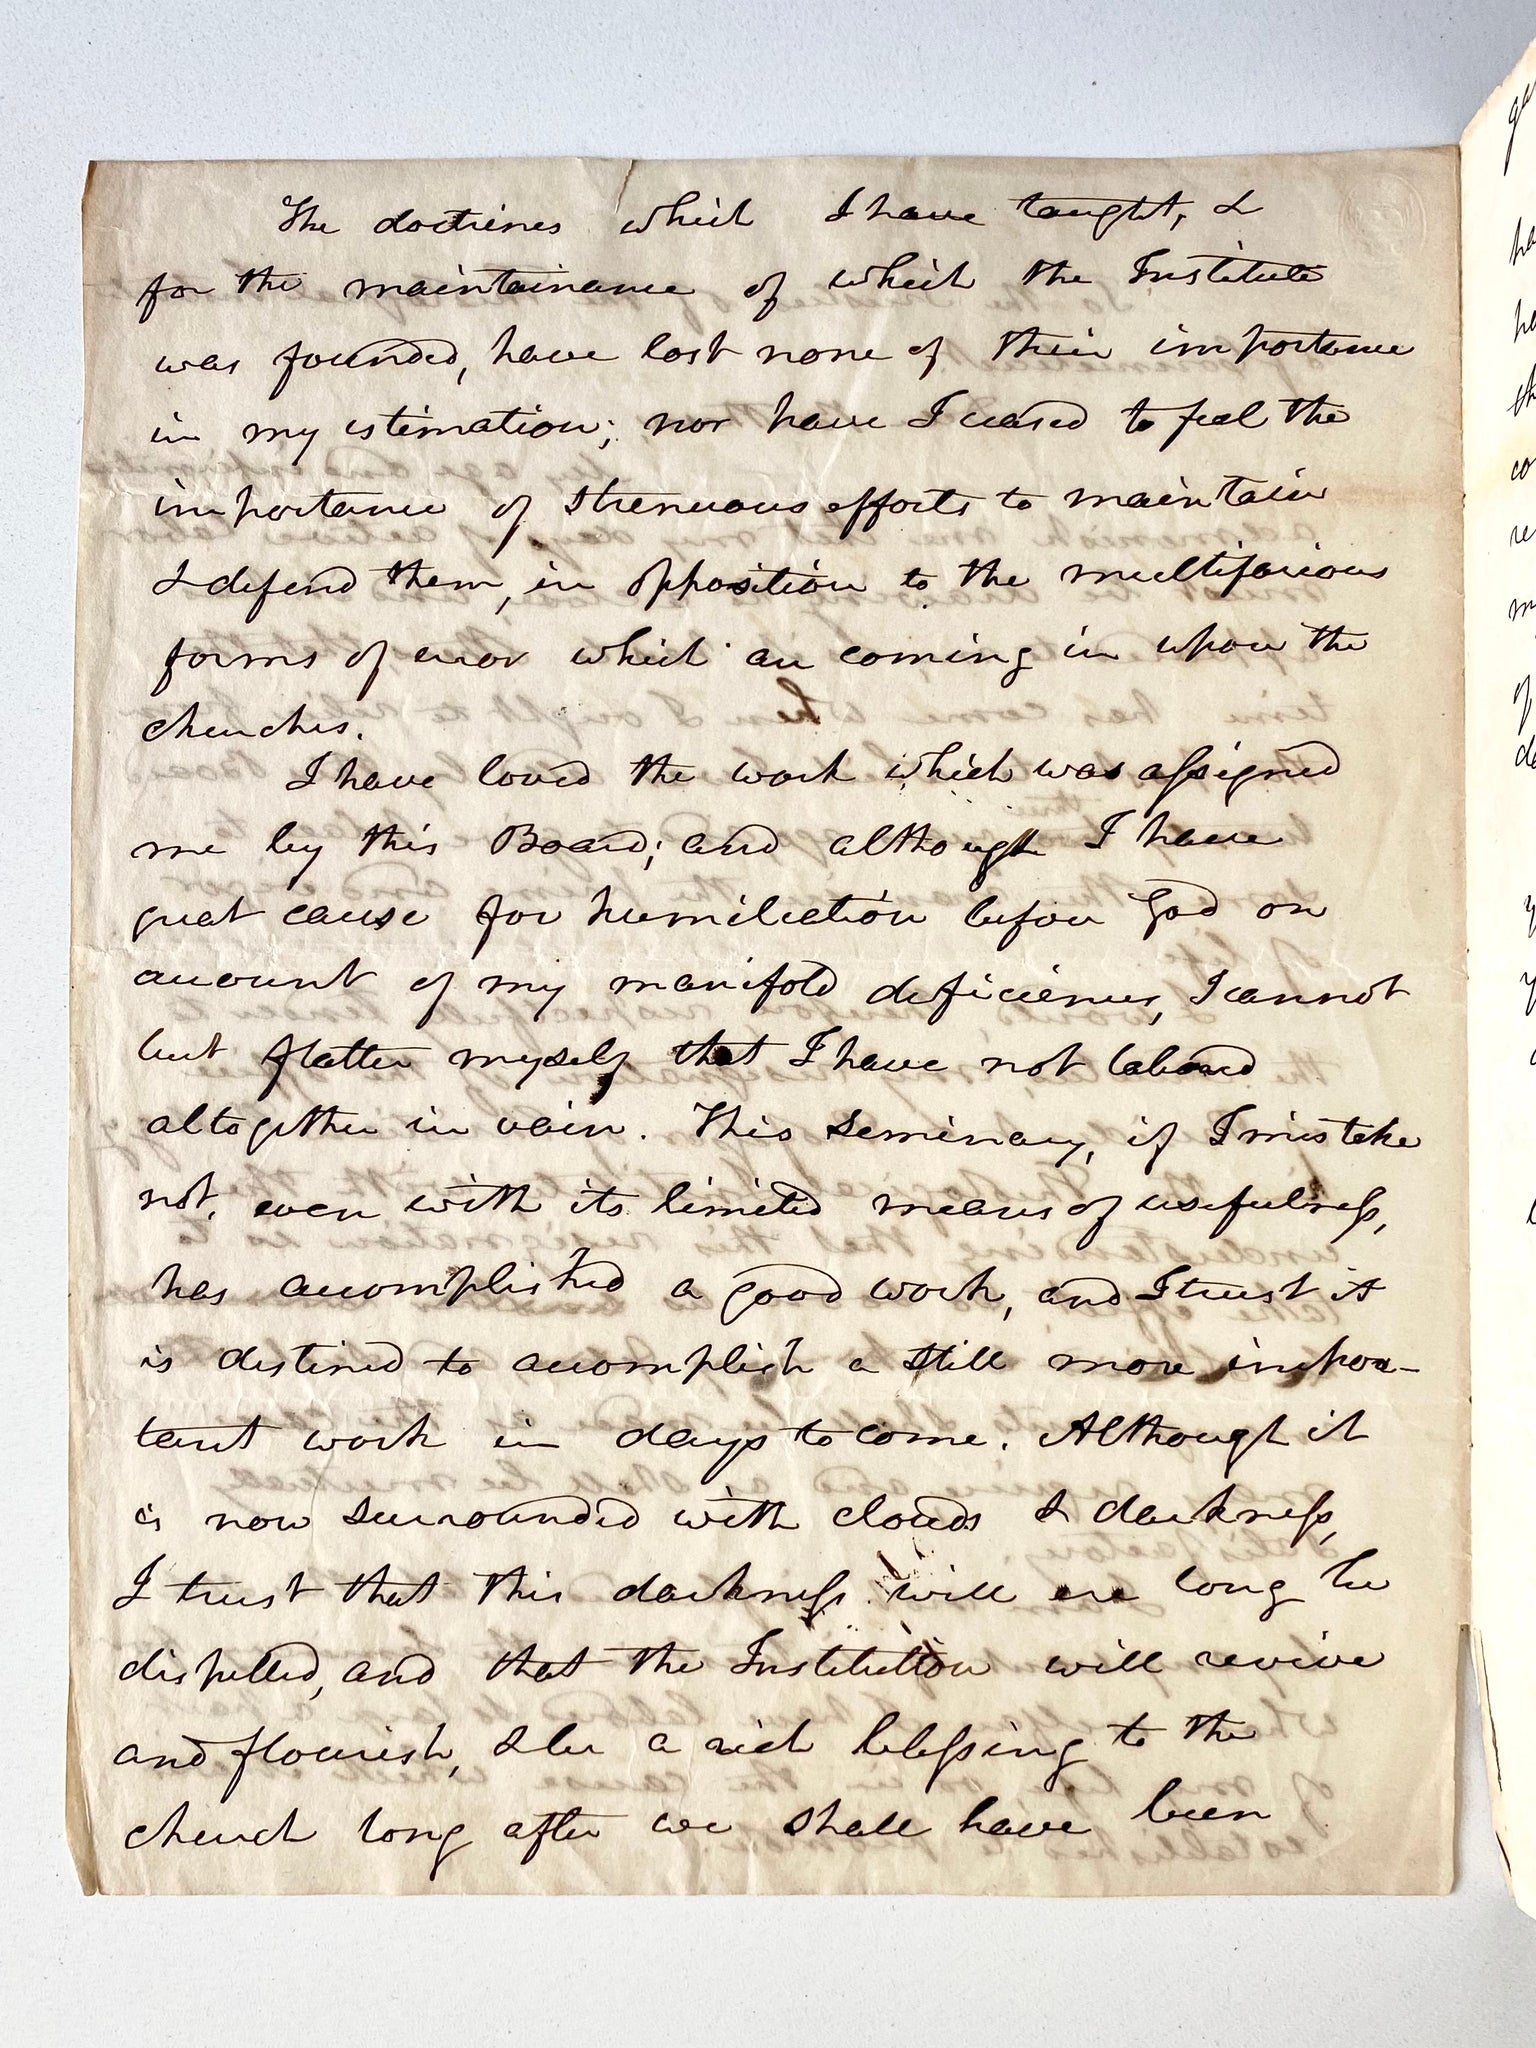 The doctrines which I have taught, &
for the maintainance of which the Institute
was founded, have lost none of their importance
in my estimation; nor have I ceased to feel the
importance of strenuous efforts to maintain
& defend them, in opposition to the multifarious
forms of error which are coming in upon the
churches.
I have loved the work which was assigned
me by this Board; and although I have
great cause for humiliation before God on
account of my manifold deficiencies, I cannot
but flatter myself that I have not labored
altogether in vain. This Seminary, if I mistake
not, even with its limited means of usefulness,
has accomplished a good work, and I trust it
is destined to accomplish a still more impor-
tant work in days to come. Although it
is now surrounded with clouds & darkness,
I trust that this darkness will ere long be
dispelled, and that the Institution will revive
and flourish, & be a rich blessing to the
church long after we shall have been